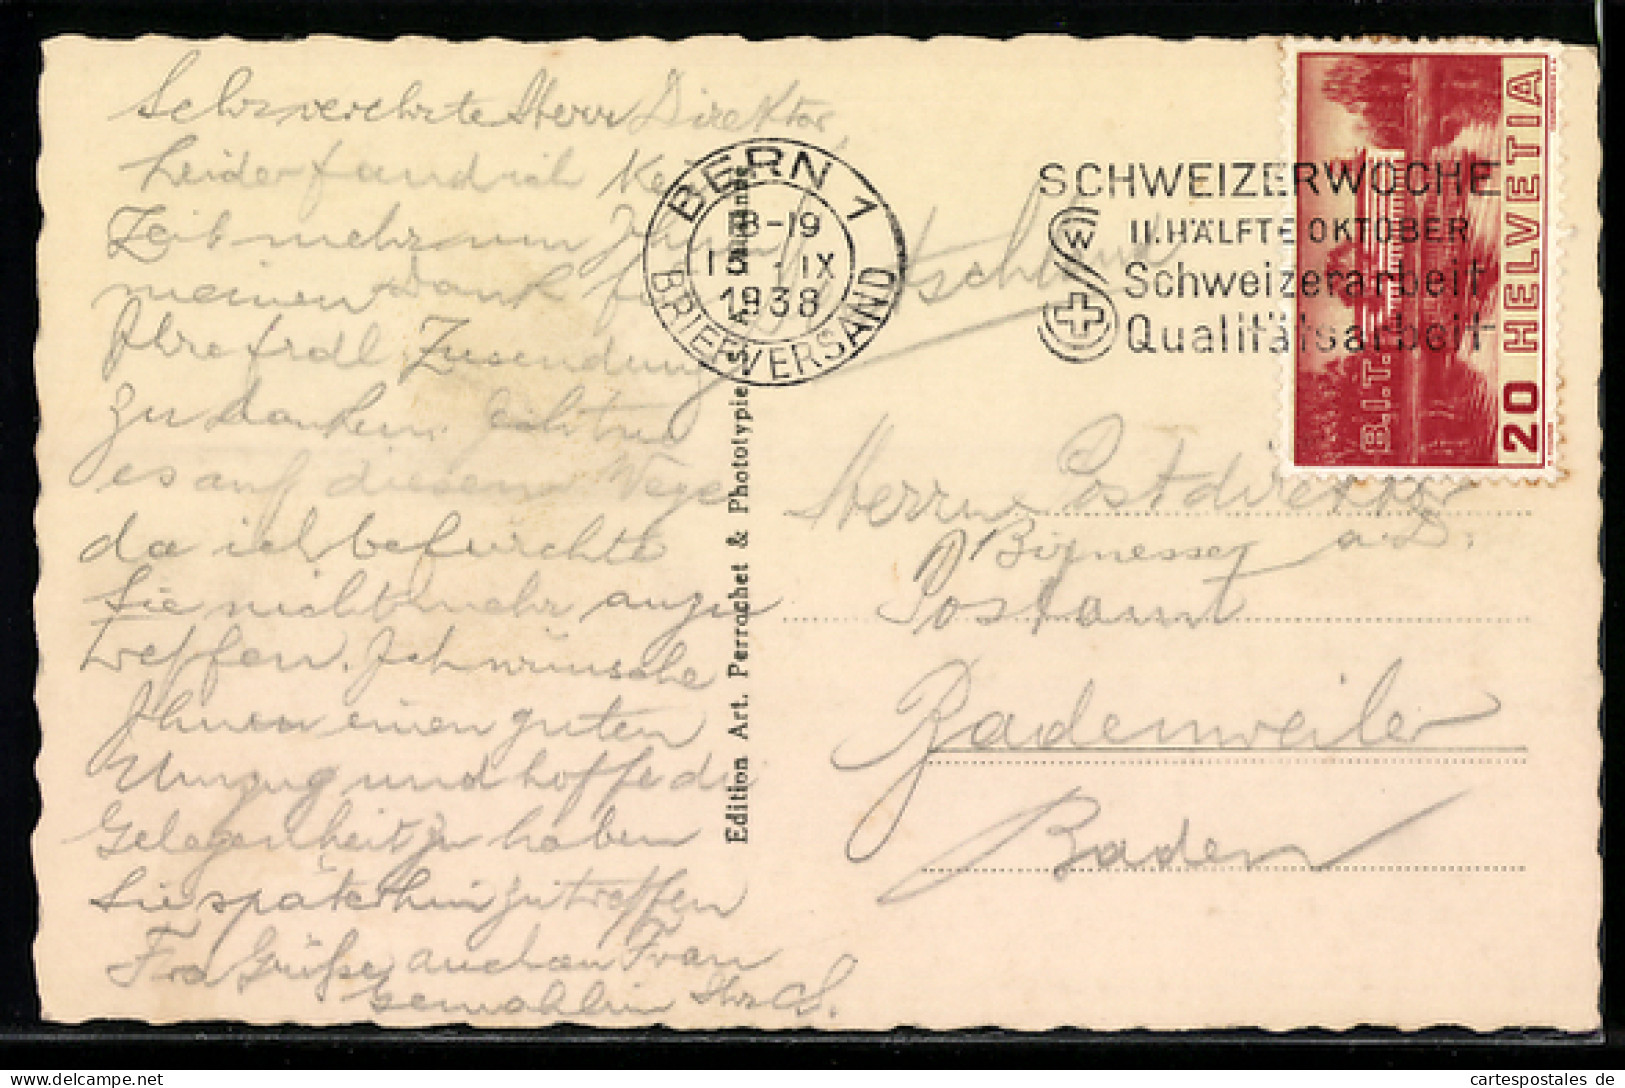 Sehr verehrte Herr Direktor,
Leider fand ich kei
Zeit mehr um Ihnen
meinen Dank für
Ihre frdl. Zusendung
zu danken.
es auf diesem Wege
da ich befürchte
Sie nicht mehr anzu
treffen. Ich wünsche
Ihnen einen guten
Umzug und hoffe die
Gelegenheit zu haben
Sie späterhin zu treffen
Grüße auch an Frau
Gemahlin Ihr
BERN 1
8-19
IX
1938
BRIEFVERSAND
SCHWEIZERWOCHE
II. HÄLFTE OKTOBER
Schweizerarbeit
Qualitätsarbeit
20 HELVETIA
B.I.T.
Edition Art. Perrochet & Phototypie
Herrn Postdirektor
a. D.
Postamt
Badenweiler
Baden
cartespostales de